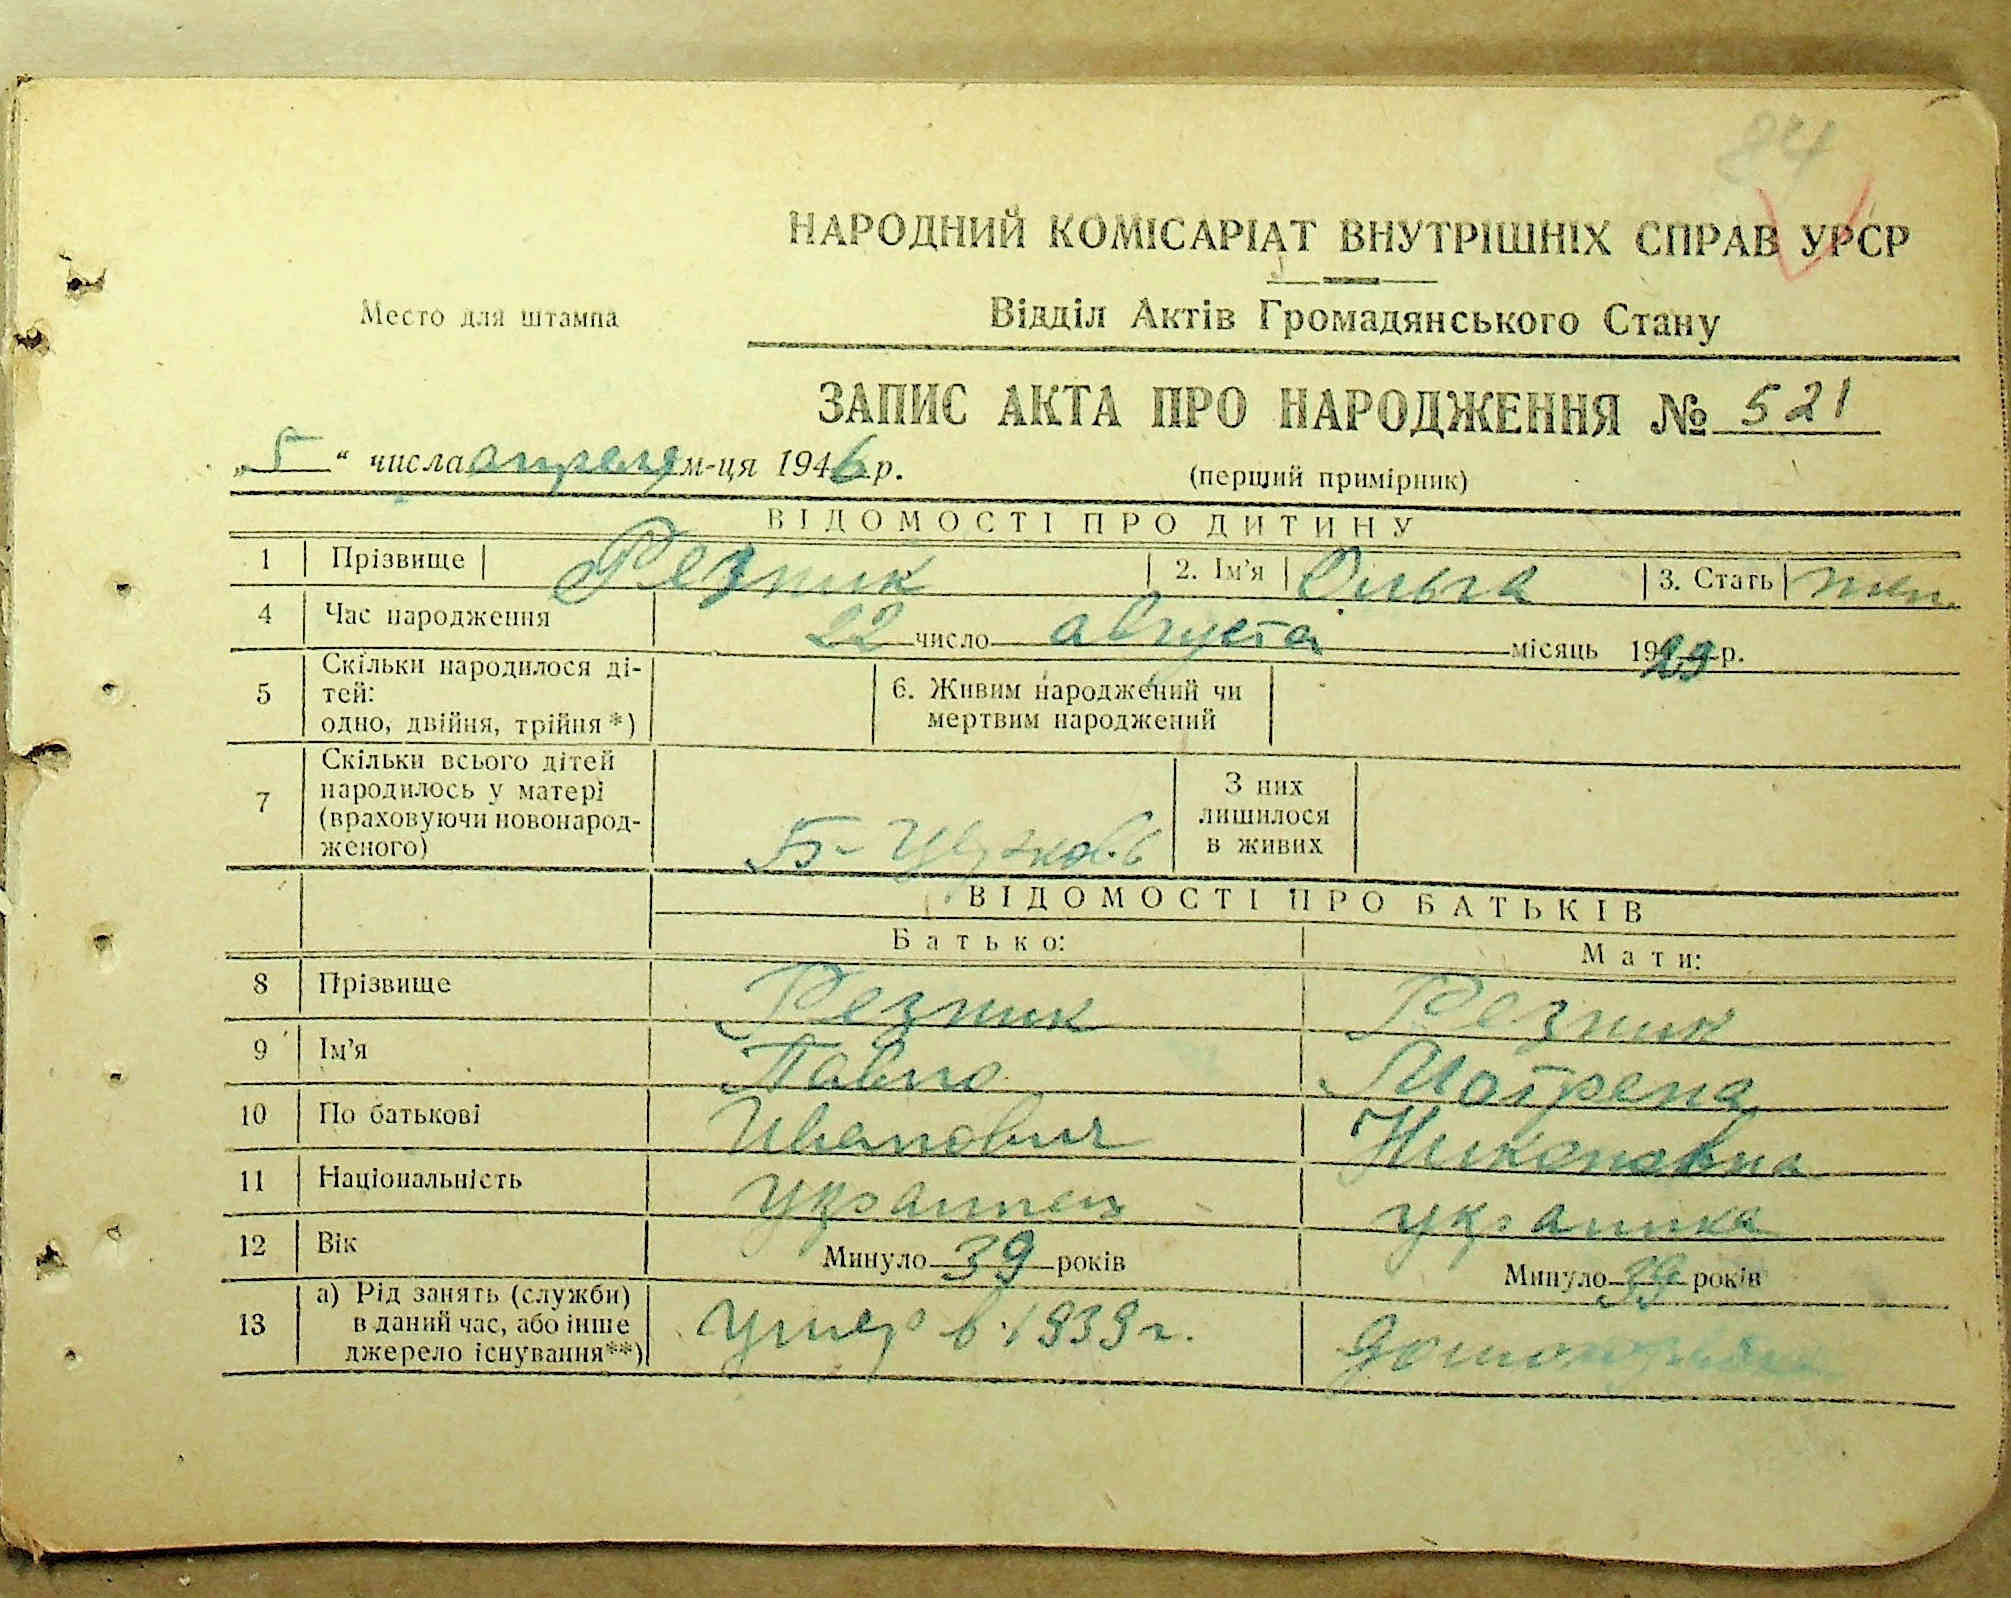 84
НАРОДНИЙ КОМІСАРІАТ ВНУТРІШНІХ СПРАВ УРСР
Место для штампа
Відділ Актів Громадянського Стану
ЗАПИС АКТА ПРО НАРОДЖЕННЯ № 521
„5“ числа апреля м-ця 1946 р.
(перший примірник)
ВІДОМОСТІ ПРО ДИТИНУ
1 Прізвище Резник 2. Ім'я Ольга 3. Стать жен.
4 Час народження 22 число августа місяць 1929 р.
5 Скільки народилося ді-
тей:
одно, двійня, трійня *)
6. Живим народжений чи
мертвим народжений
7 Скільки всього дітей
народилось у матері
(враховуючи новонарод-
женого)
Б-Церковь
З них
лишилося
в живих
ВІДОМОСТІ ПРО БАТЬКІВ
Батько: Мати:
8 Прізвище Резник Резник
9 Ім'я Павло Мотрена
10 По батькові Иванович Никоновна
11 Національність украинец украинка
12 Вік Минуло 39 років Минуло 39 років
13 а) Рід занять (служби)
в даний час, або інше
джерело існування**)
умер в 1939 г.